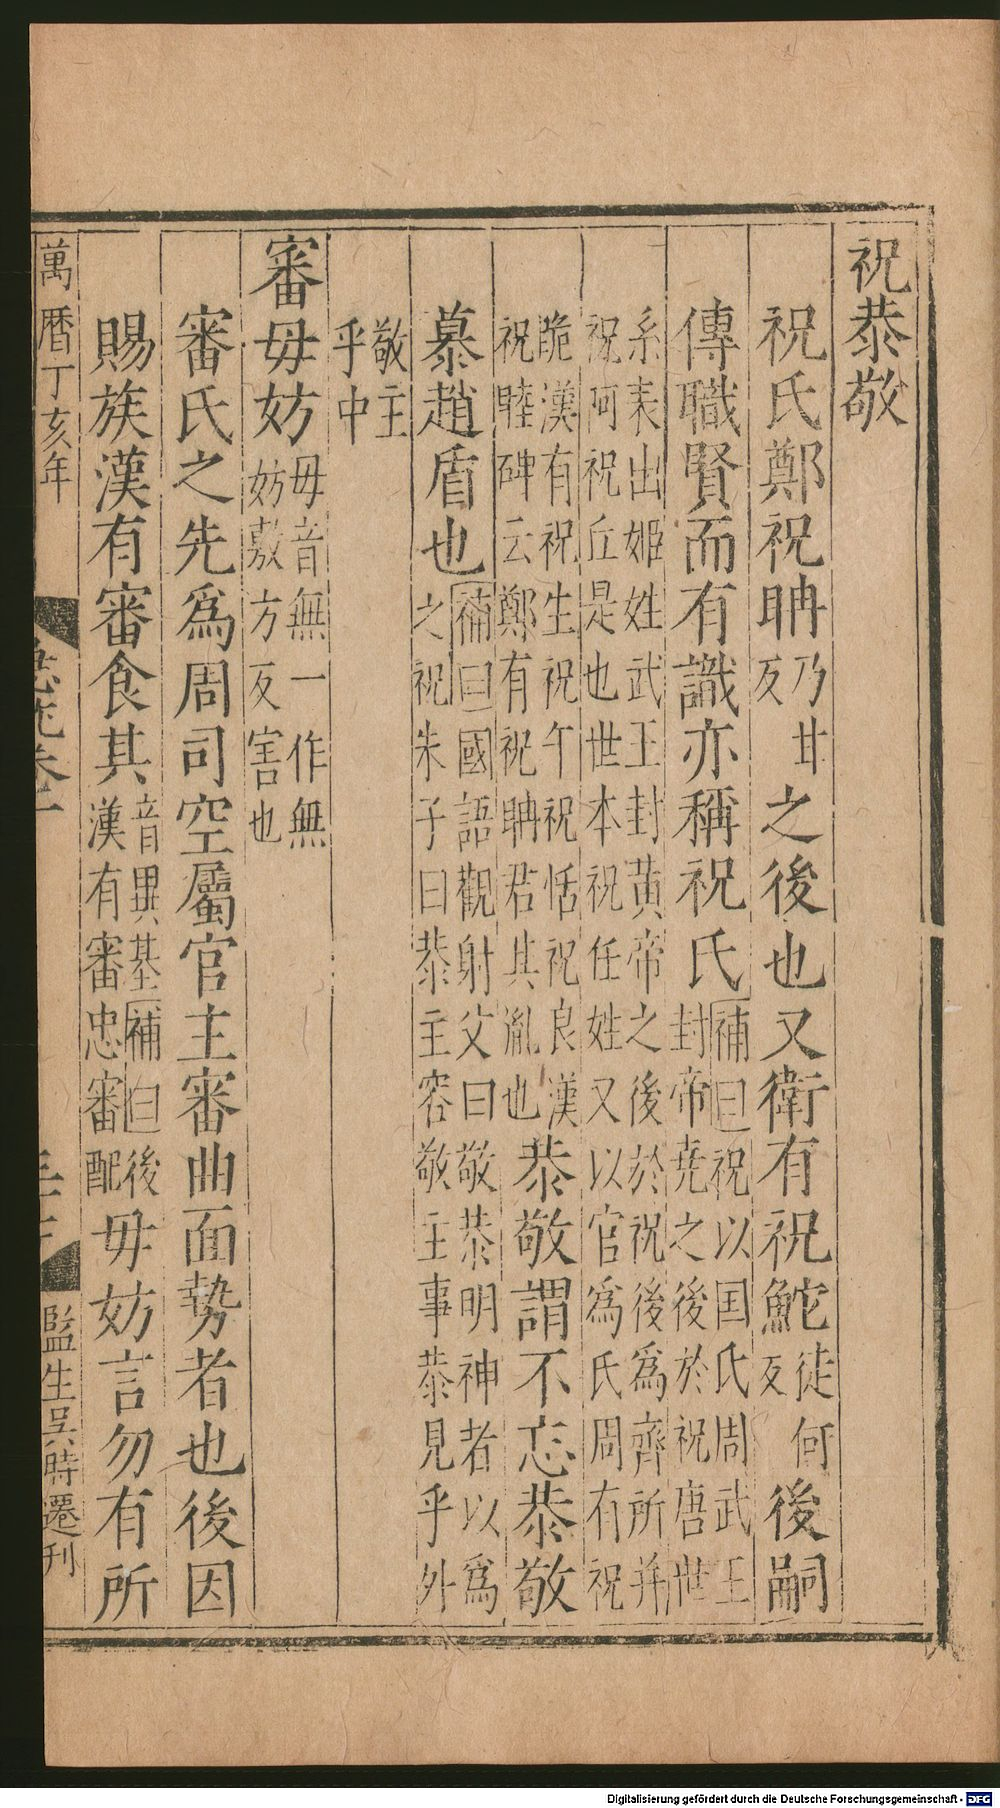 祝恭敬
祝氏鄭祝聃乃甘反之後也又衛有祝鮀徒何反後嗣
傳職賢而有識亦稱祝氏補曰祝以国氏周武王封帝堯之後於祝唐世
系耒出姬姓武王封黄帝之後於祝後爲齊所并祝阿祝丘是也世本祝任姓又以官爲氏周有祝
跪漢有祝生祝午祝恬祝良漢祝睦碑云鄭有祝聃君其胤也恭敬謂不忘恭敬
慕趙盾也補曰國語觀射父曰敬恭明神者以爲之祝朱子曰恭主容敬主事恭見乎外
敬主乎中
審毋妨毋音無一作無妨敷方反害也
審氏之先爲周司空屬官主審曲面勢者也後因
賜族漢有審食其音異基補曰後漢有審忠審配毋妨言勿有所
萬曆丁亥年
監生吴時遷刊
Digitalisierung gefördert durch die Deutsche Forschungsgemeinschaft - DFG